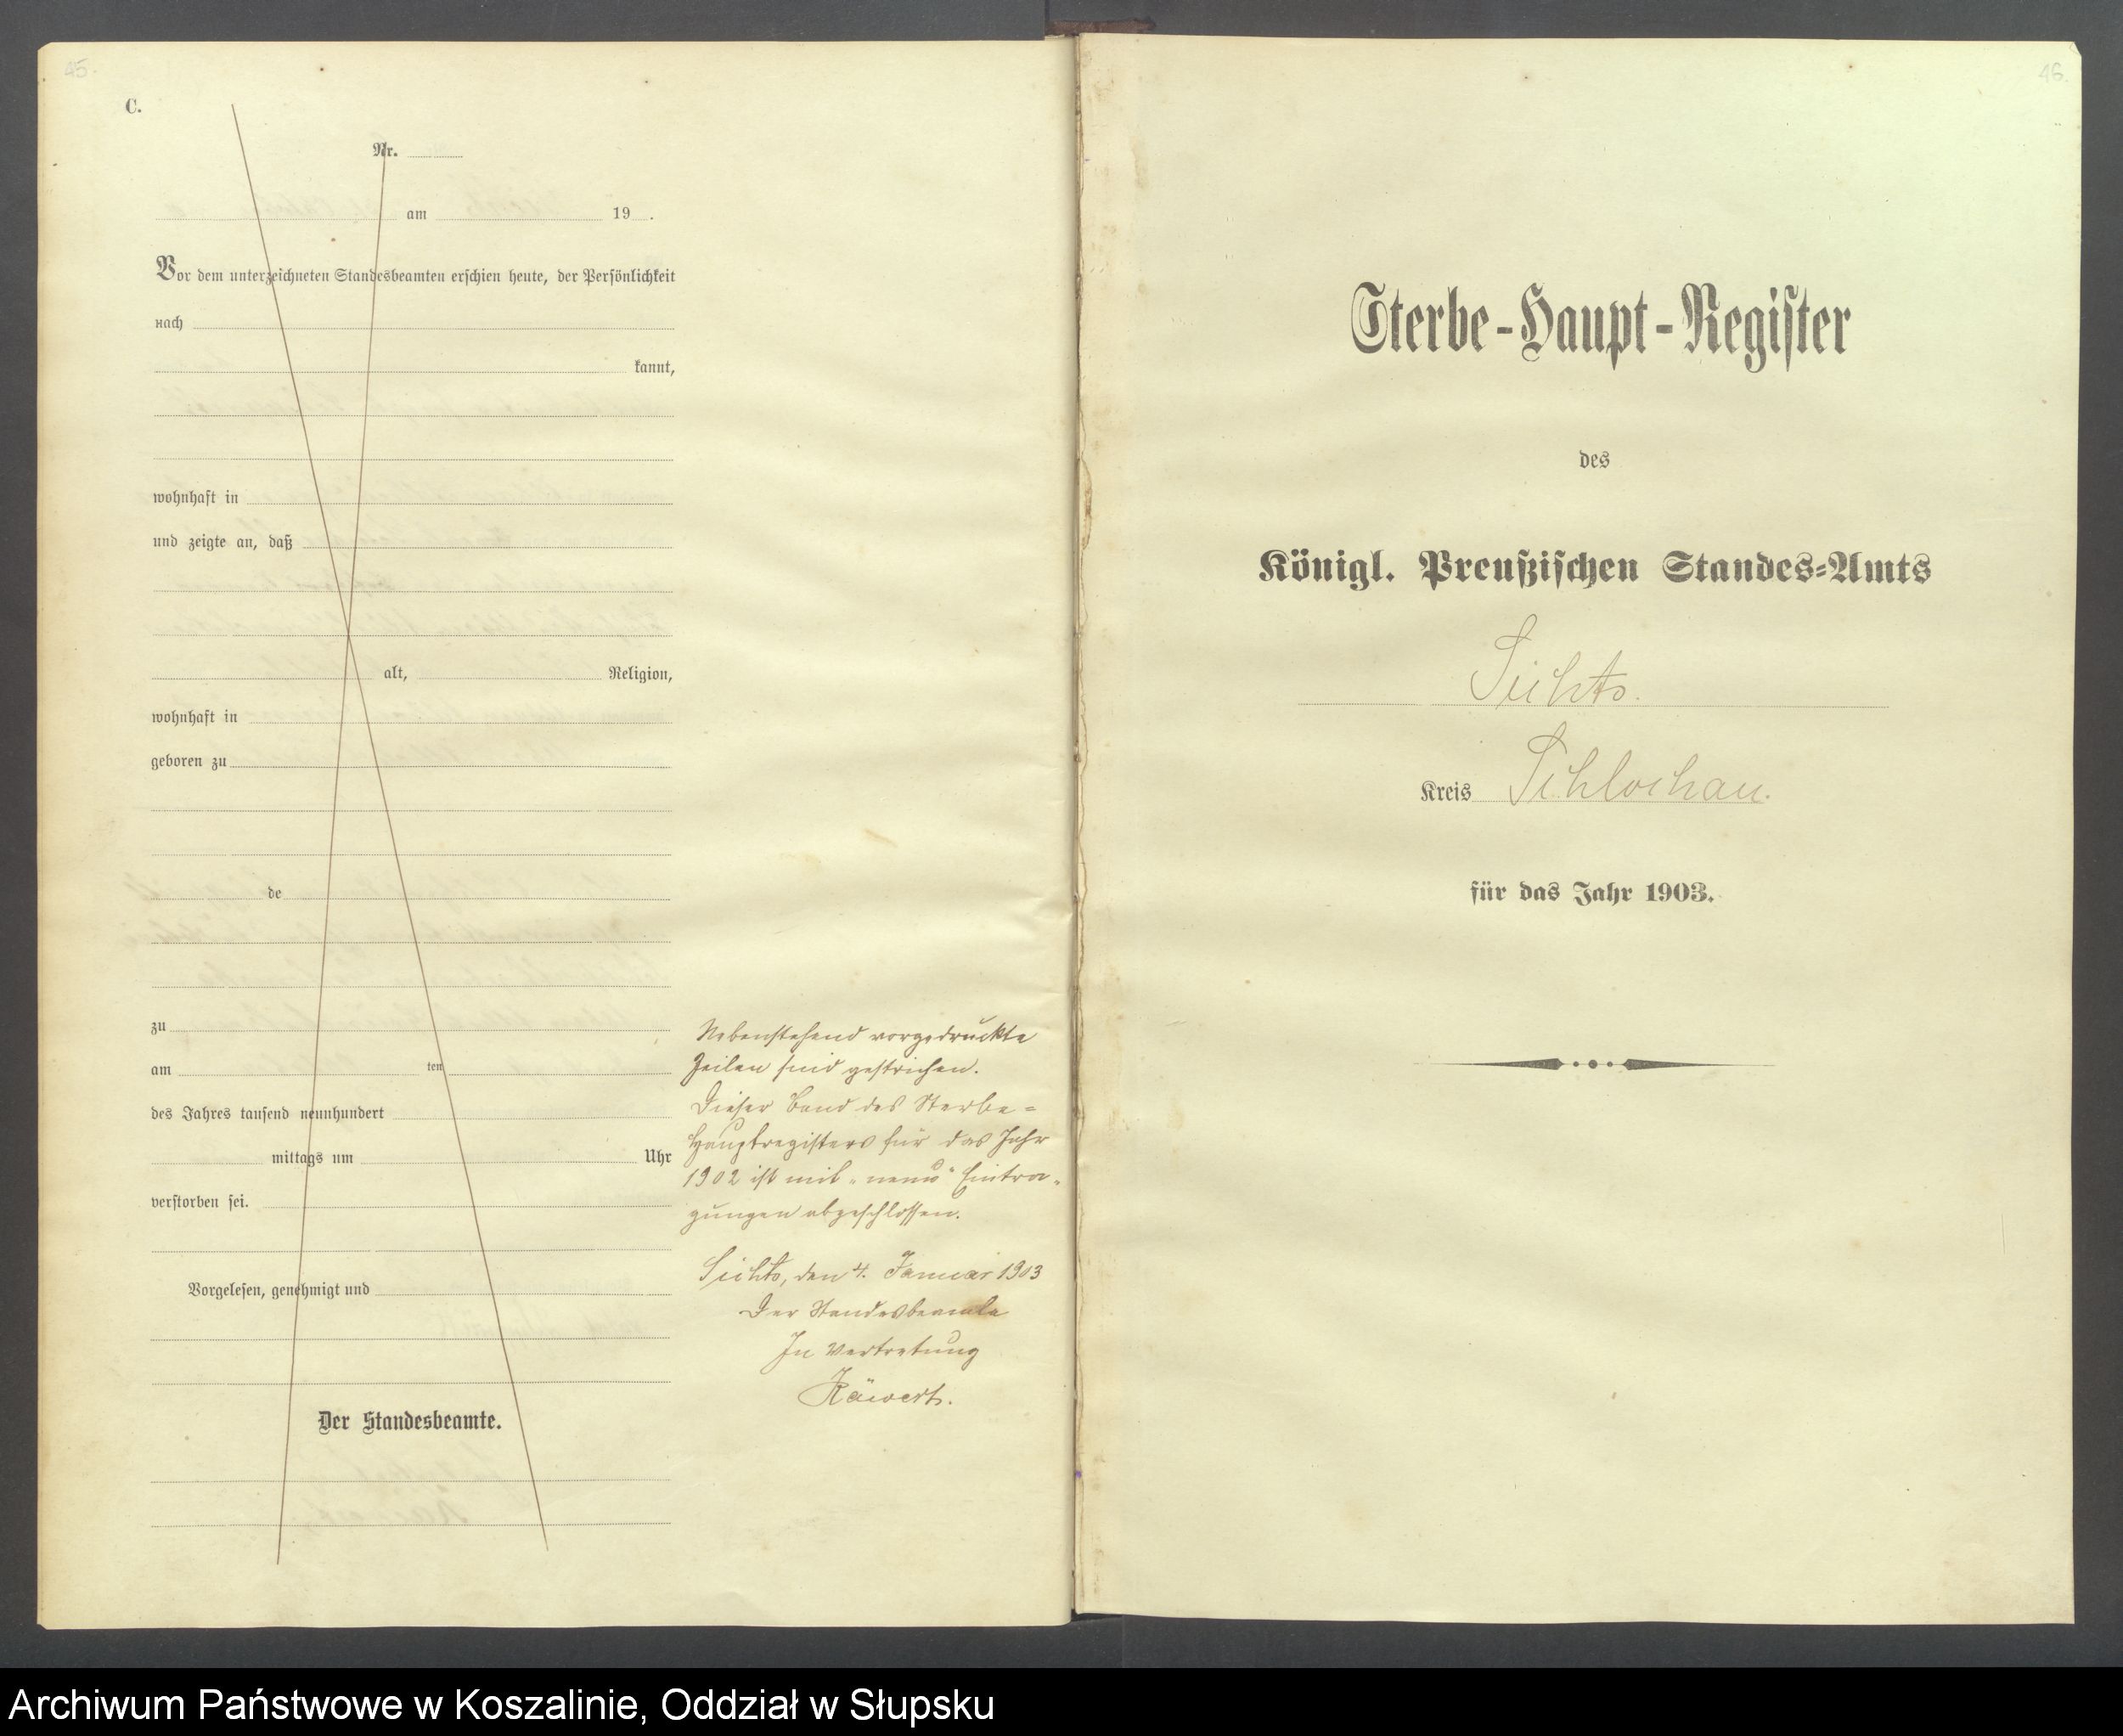 45.
C.
Nr.
am 19 .
Vor dem unterzeichneten Standesbeamten erschien heute, der Persönlichkeit
nach
kannt,
wohnhaft in
und zeigte an, daß
alt, Religion,
wohnhaft in
geboren zu
de
zu
am ten
des Jahres tausend neunhundert
mittags um Uhr
verstorben sei.
Vorgelesen, genehmigt und
Der Standesbeamte.
Nebenstehend vorgedruckte
Zeilen sind gestrichen.
Dieser Band des Sterbe=
Hauptregisters für das Jahr
1902 ist mit „neun“ Eintra-
gungen abgeschlossen.
Sichts, den 4. Januar 1903
Der Standesbeamte
In Vertretung
46.
Sterbe-Haupt-Register
des
Königl. Preußischen Standes-Amts
Sichts.
Kreis Schlochau.
für das Jahr 1903.
Archiwum Państwowe w Koszalinie, Oddział w Słupsku